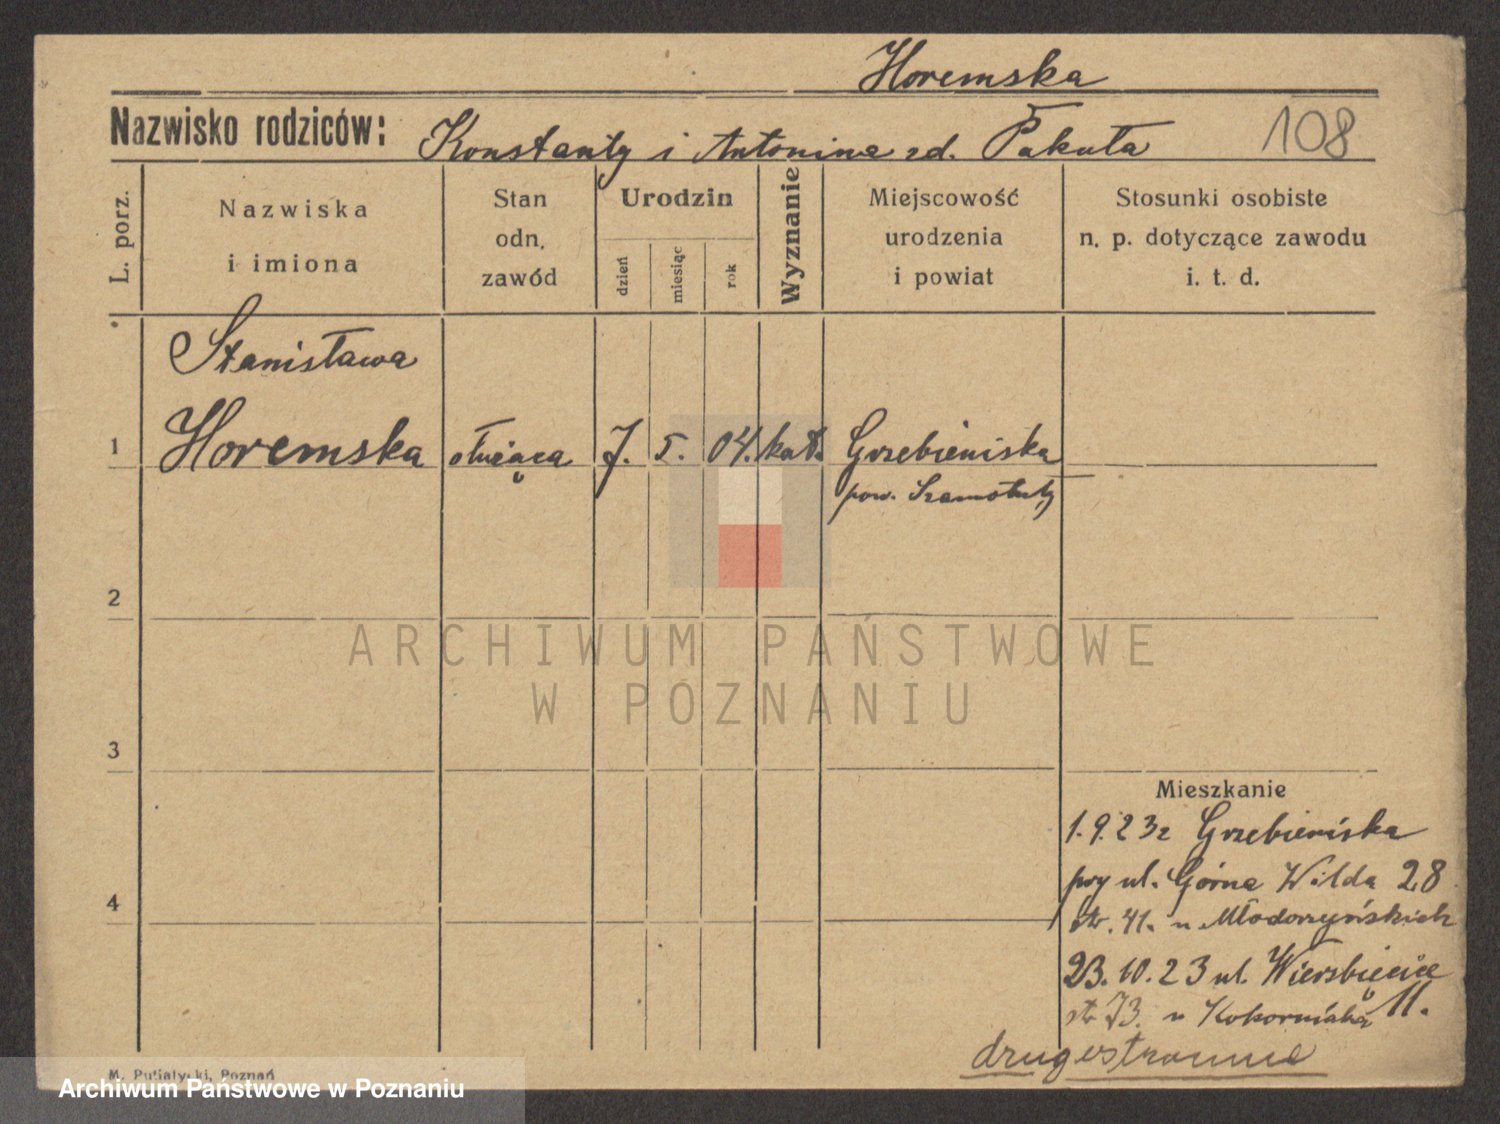 Horemska
Nazwisko rodziców: Konstanty i Antonina zd. Pakuła 108
L. porz.
Nazwiska
i imiona
Stan
odn.
zawód
Urodzin
dzień miesiąc rok
Wyznanie
Miejscowość
urodzenia
i powiat
Stosunki osobiste
n. p. dotyczące zawodu
i. t. d.
Stanisława
1 Horemska służąca 7. 5. 04. kat. Grzebienisko
pow. Szamotuły
2
3
4
Mieszkanie
1.9.23 z Grzebieniska
przy ul. Górna Wilda 28
str. 41. u
23.10.23 ul. Wierzbięcice 11.
str 73. u
drugostronnie
M. Putiatycki, Poznań
ARCHIWUM PAŃSTWOWE
W POZNANIU
Archiwum Państwowe w Poznaniu